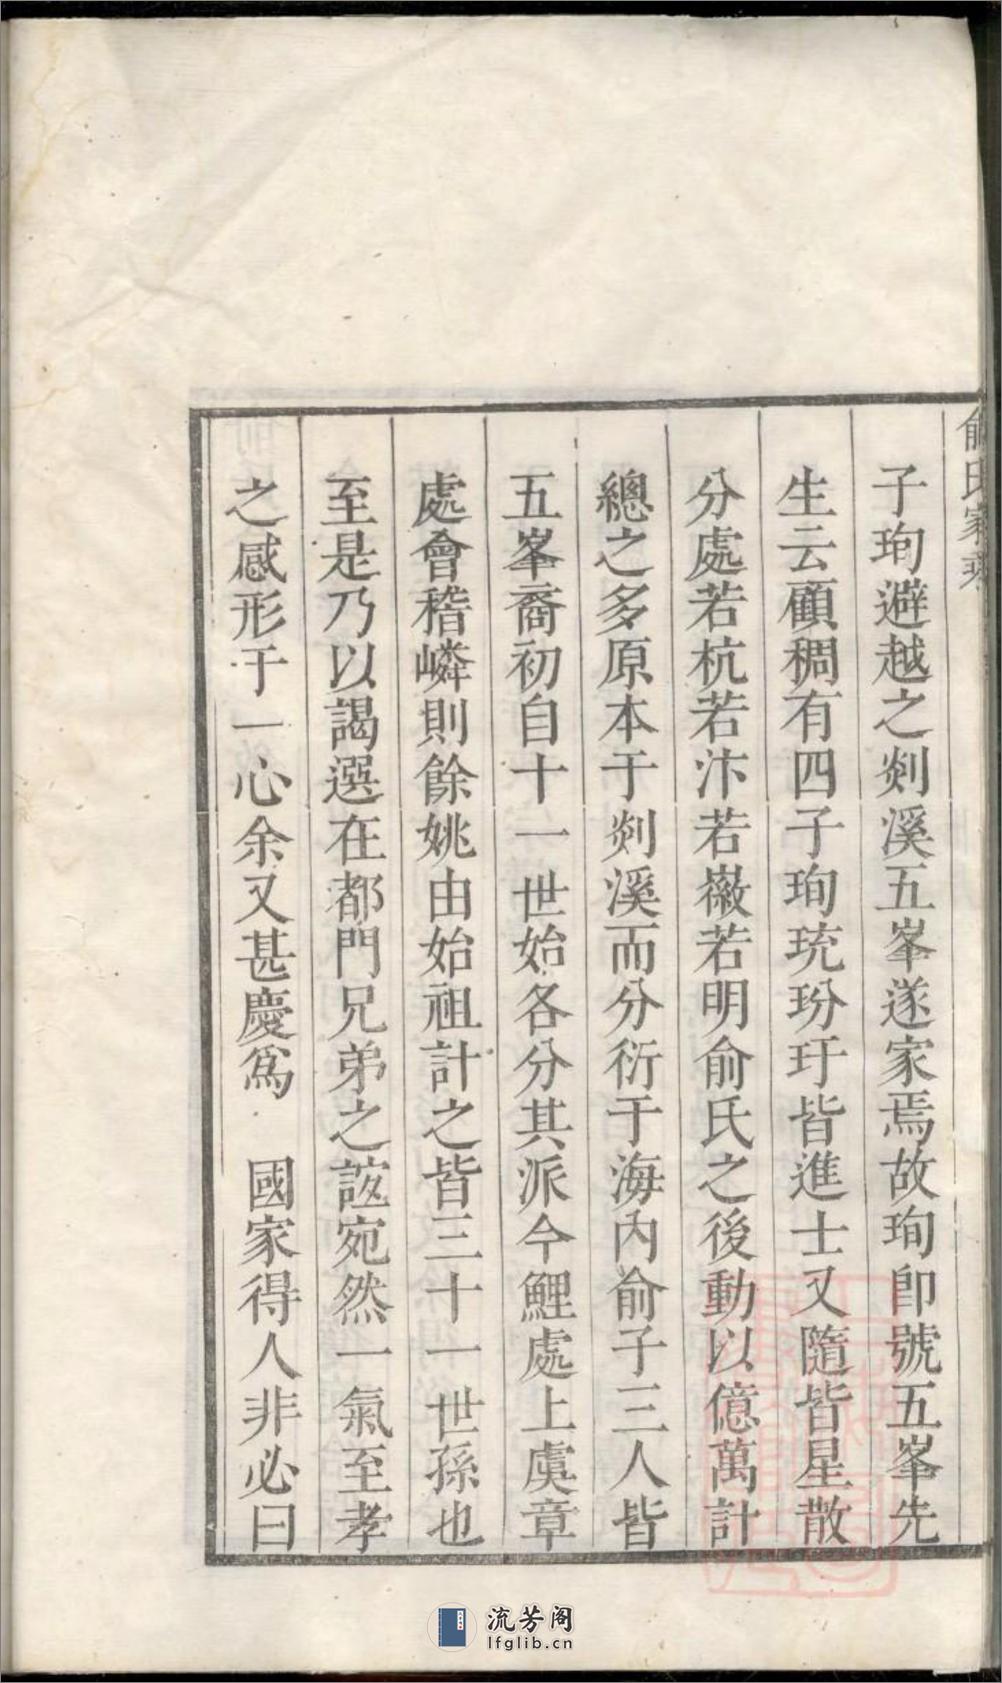 俞氏家乘
子珣避越之剡溪五峯遂家焉故珣即號五峯先
生云顧稠有四子珣珫玢玗皆進士又隨皆星散
分處若杭若汴若嶶若明俞氏之後動以億萬計
總之多原本于剡溪而分衍于海內俞子三人皆
五峯裔初自十一世始各分其派今鯉處上虞章
處會稽嶙則餘姚由始祖計之皆三十一世孫也
至是乃以謁選在都門兄弟之誼宛然一氣至孝
之感形于一心余又甚慶爲 國家得人非必曰
流芳阁
lfglib.cn